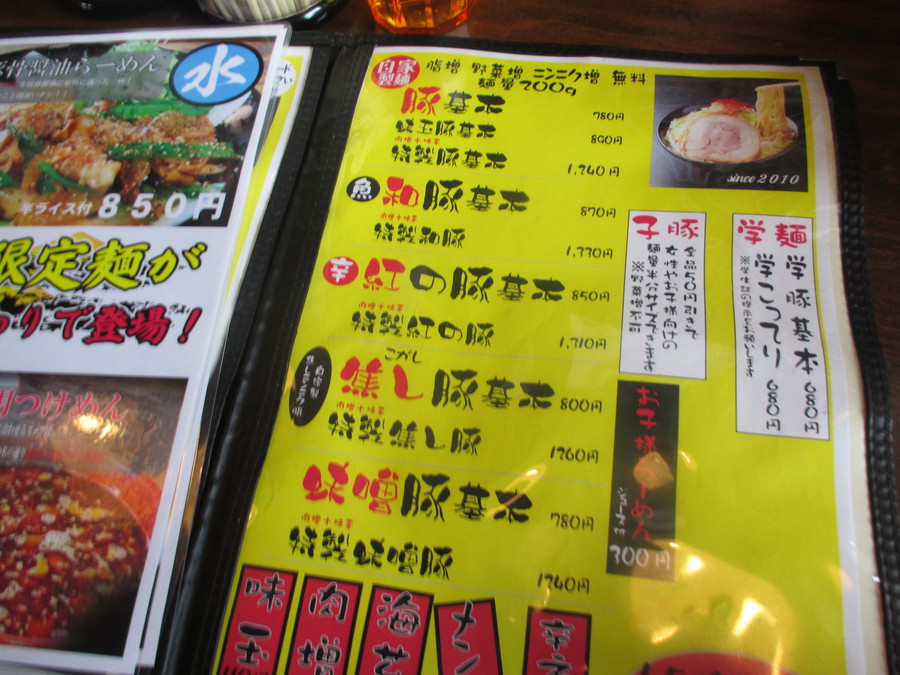 骨醤油らーめん
水
半ライス付 850円
限定麺が
わりで登場！
つけめん
自家製麺
脂増 野菜増 ニンニク増 無料
麺量200g
豚基本 780円
味玉豚基本 890円
肉増+味玉
特製豚基本 1,240円
魚 和豚基本 870円
肉増+味玉
特製和豚 1,330円
辛 紅の豚基本 850円
肉増+味玉
特製紅の豚 1,310円
自家製
焦しニンニク脂
こがし
焦し豚基本 800円
肉増+味玉
特製焦し豚 1260円
味噌豚基本 780円
肉増+味玉
特製味噌豚 1240円
since2010
子豚
全品50円引きで
女性やお子様向けの
麺量半分サイズできます
※野菜増不可
学麺
学豚基本 680円
学こってり 680円
※学生証の提示をお願いします
お子様らーめん
ジュース付
300円
味玉
肉増
海苔
メン